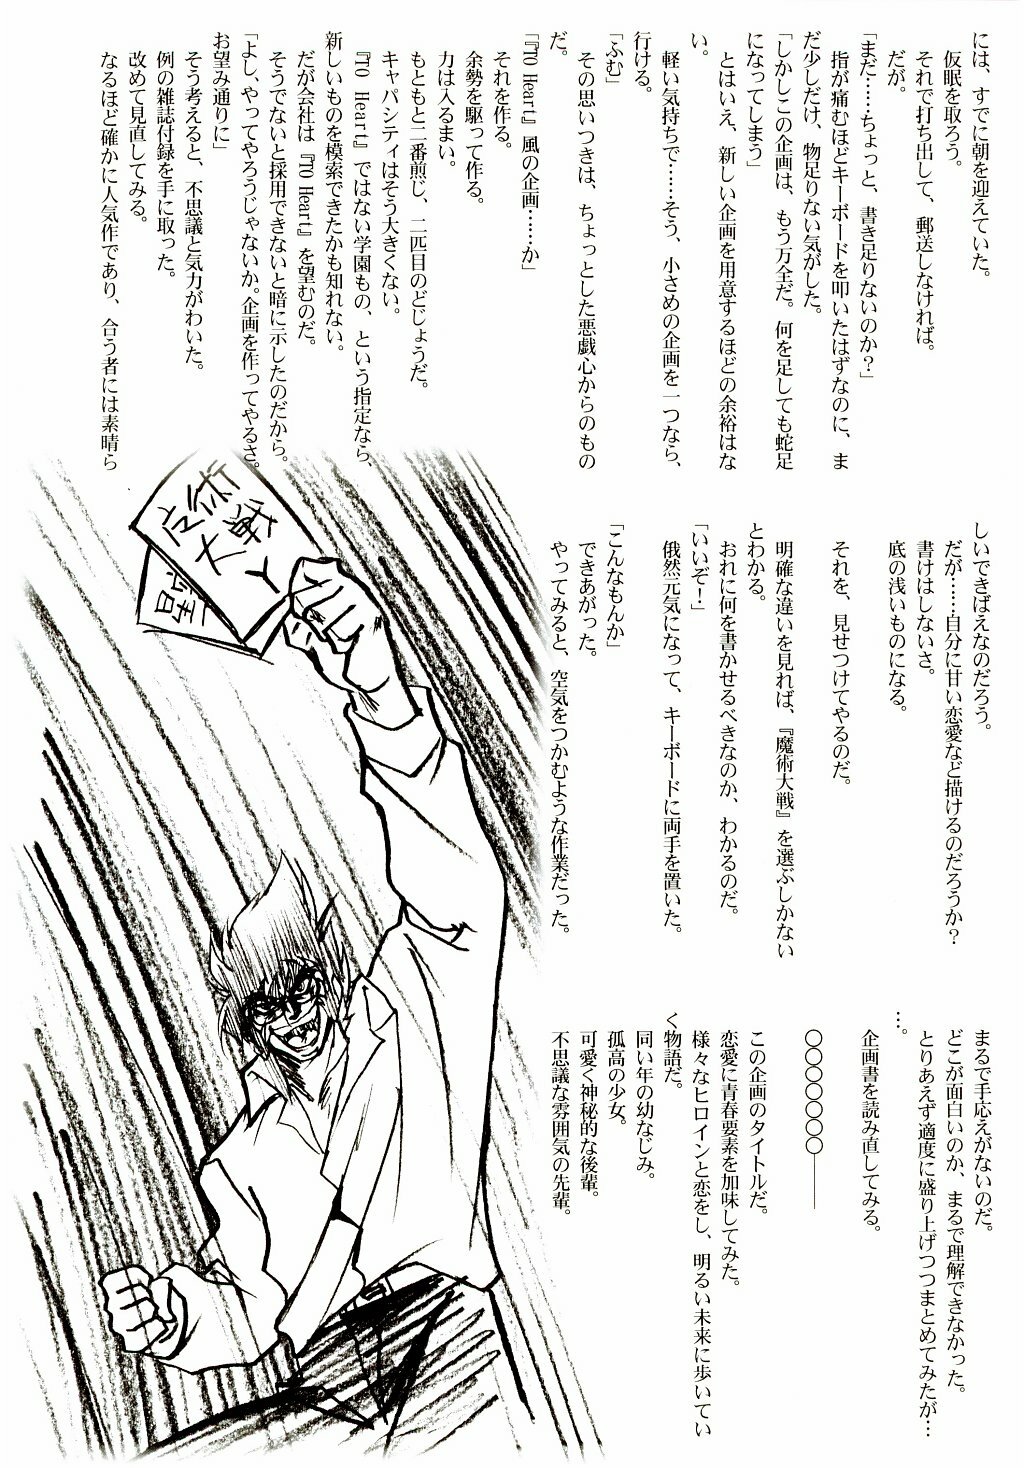 には、すでに朝を迎えていた。
仮眠を取ろう。
それで打ち出して、郵送しなければ。
だが。
「まだ……ちょっと、書き足りないのか？」
指が痛むほどキーボードを叩いたはずなのに、ま
だ少しだけ、物足りない気がした。
「しかしこの企画は、もう万全だ。何を足しても蛇足
になってしまう」
とはいえ、新しい企画を用意するほどの余裕はな
い。
軽い気持ちで……そう、小さめの企画を一つなら、
行ける。
「ふむ」
その思いつきは、ちょっとした悪戯心からのもの
だ。
「『TO Heart』風の企画……か」
それを作る。
余勢を駆って作る。
力は入るまい。
もともと二番煎じ、二匹目のどじょうだ。
キャパシティはそう大きくない。
『TO Heart』ではない学園もの、という指定なら、
新しいものを模索できたかも知れない。
だが会社は『TO Heart』を望むのだ。
そうでないと採用できないと暗に示したのだから。
「よし、やってやろうじゃないか。企画を作ってやるさ。
お望み通りに」
そう考えると、不思議と気力がわいた。
例の雑誌付録を手に取った。
改めて見直してみる。
なるほど確かに人気作であり、合う者には素晴ら
しいできばえなのだろう。
だが……自分に甘い恋愛など描けるのだろうか？
書けはしないさ。
底の浅いものになる。
それを、見せつけてやるのだ。
明確な違いを見れば、『魔術大戦』を選ぶしかない
とわかる。
おれに何を書かせるべきなのか、わかるのだ。
「いいぞ！」
俄然元気になって、キーボードに両手を置いた。
「こんなもんか」
できあがった。
やってみると、空気をつかむような作業だった。
まるで手応えがないのだ。
どこが面白いのか、まるで理解できなかった。
とりあえず適度に盛り上げつつまとめてみたが…
…。
企画書を読み直してみる。
〇〇〇〇〇〇――
この企画のタイトルだ。
恋愛に青春要素を加味してみた。
様々なヒロインと恋をし、明るい未来に歩いてい
く物語だ。
同い年の幼なじみ。
孤高の少女。
可愛く神秘的な後輩。
不思議な雰囲気の先輩。
術
大戦
書